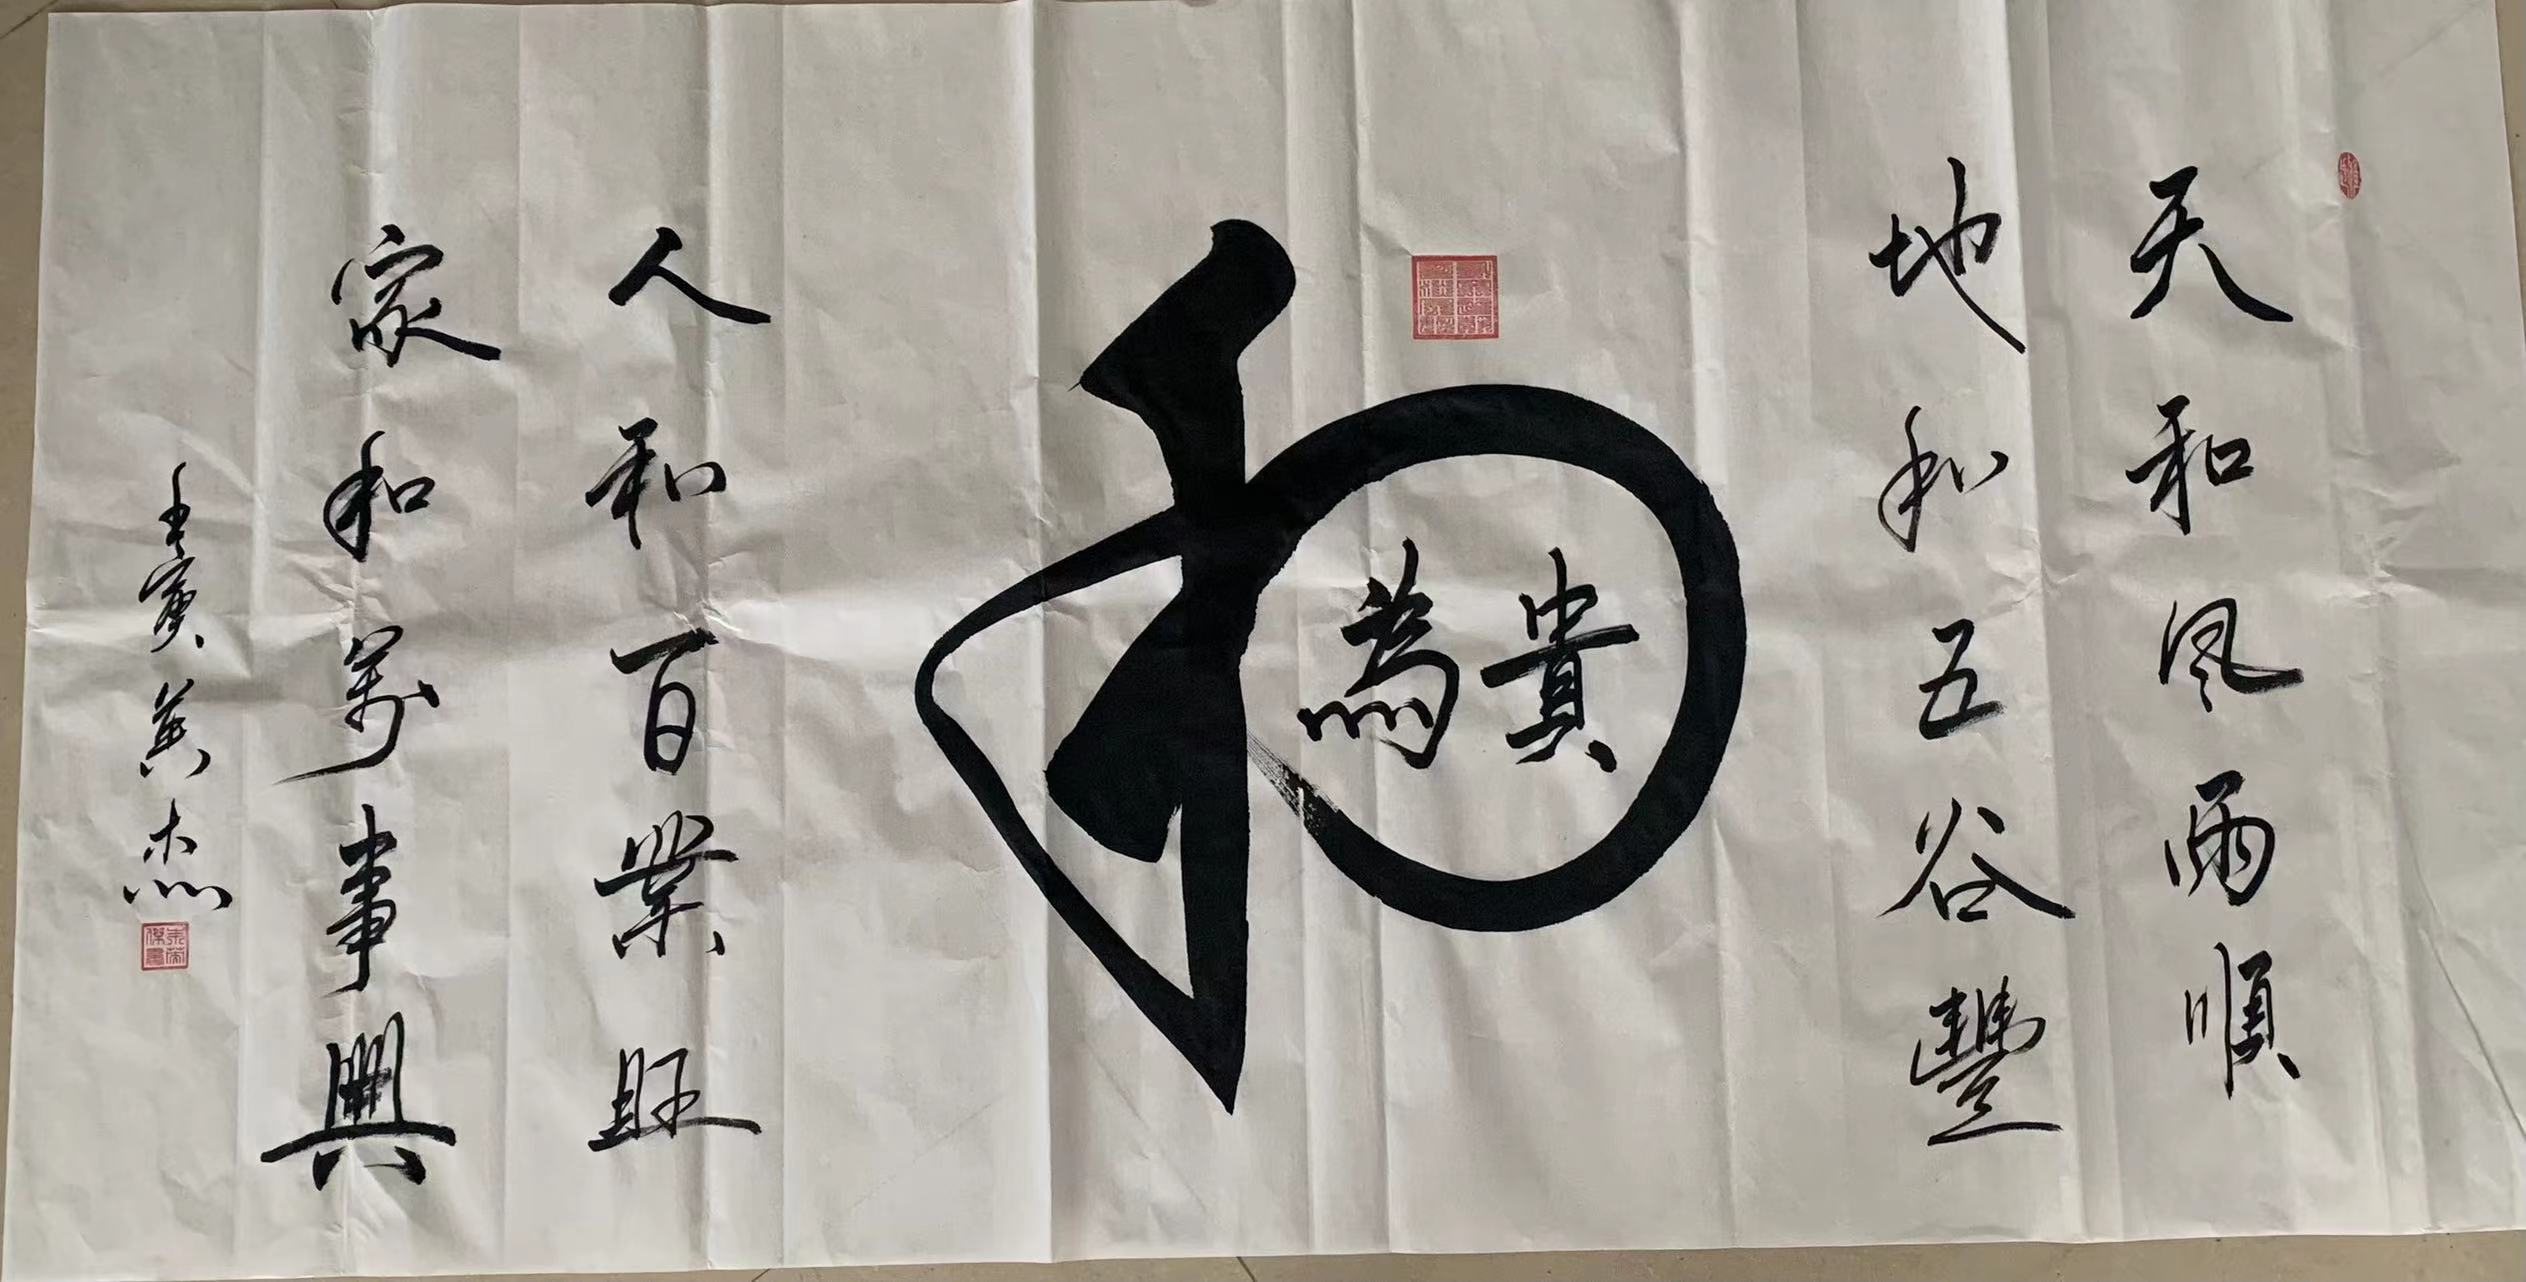 天和风雨順
地和五谷豐
和
貴
為
人和百業旺
家和萬事興
壬寅 英杰